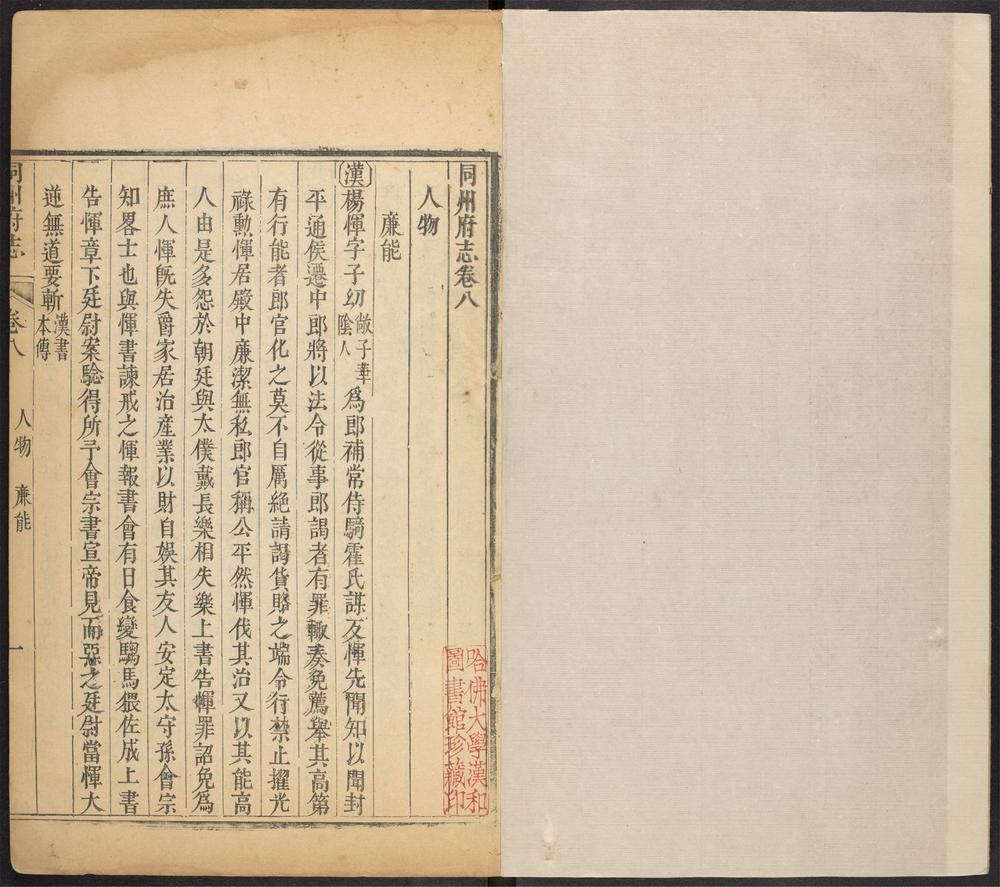 同州府志卷八
人物
廉能
漢楊惲字子幼敞子華陰人爲郎補常侍騎霍氏謀反惲先聞知以聞封
平通侯遷中郎將以法令從事郎謁者有罪輙奏免薦舉其高第
有行能者郎官化之莫不自厲絶請謁貨賂之端令行禁止擢光
祿勲惲居殿中廉潔無私郎官稱公平然惲伐其治又以其能高
人由是多怨於朝廷與太僕戴長樂相失樂上書告惲罪詔免爲
庶人惲旣失爵家居治産業以財自娛其友人安定太守孫會宗
知畧士也與惲書諫戒之惲報書會有日食變騶馬猥佐成上書
告惲章下廷尉案驗得所予會宗書宣帝見而惡之廷尉當惲大
逆無道要斬漢書本傳
同州府志 卷八 人物 廉能 一
哈佛大學漢和
圖書館珍藏印